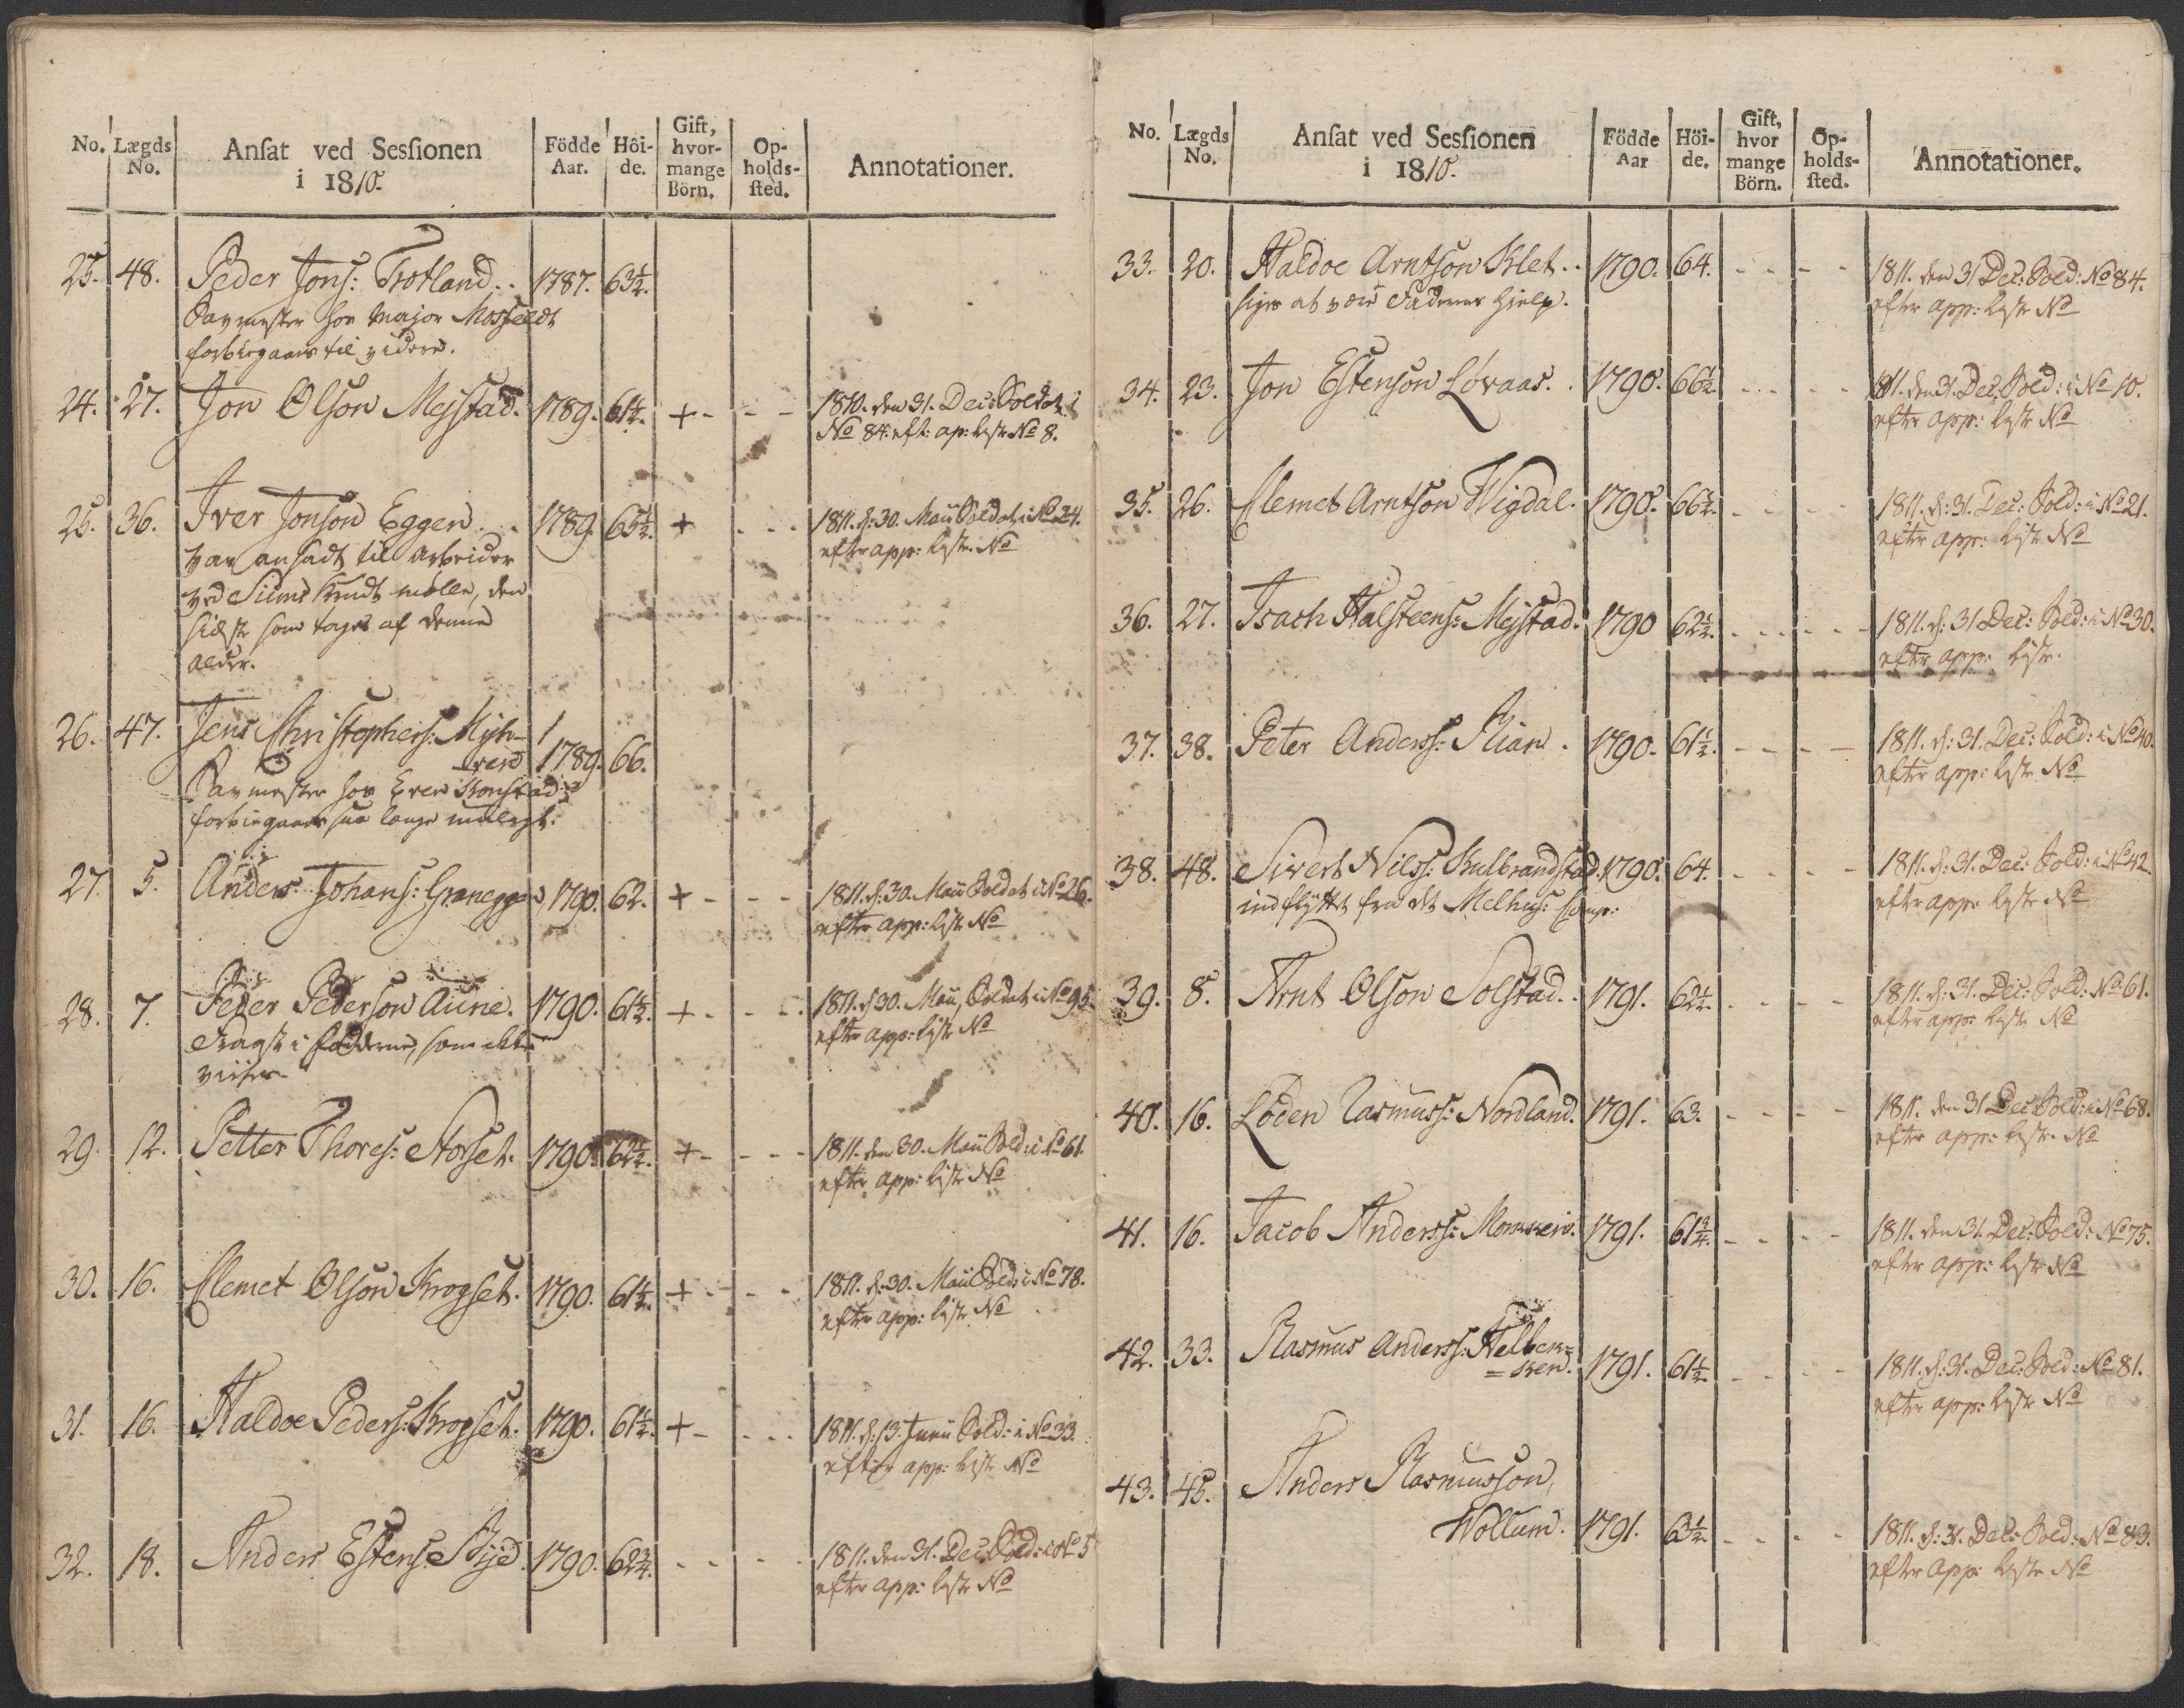 No. Lægds No. Ansat ved Sessionen i 1810. Födde Aar. Höi-de. Gift, hvor-mange Börn. Op-holds-sted. Annotationer.
25. 48. Peder Jons: Trotland.. 1787. 63½.
Savmester hos Major Mosfeldt
forbiegaaes til videre.
24. 27. Jon Olson Mejstad. 1789. 61½. + - - - 1810. den 31. Dec: Soldat i
No 84. eft: ap: liste No 8.
25. 36. Iver Jonson Eggen.. 1789. 65½. + - - - 1811. d: 30. Maii Soldat i No 34.
var ansadt til Arbeider efter app: liste No
ved Siims Krudt mølle, den
sidste som tages af denne
alder.
26. 47. Jens Christophers: Myh-
ren 1789. 66.
Savmester hos Even Konstad
forbiegaaes saa længe muligt.
27. 5. Anders Johans: Graneggen, 1790. 62. + - - - 1811. d: 30. Maii Soldat i No 26.
efter app: liste No
28. 7. Peder Pederson Aune. 1790. 61½. + - - - 1811. d 30. Maii, Soldat i No 95.
i fødderne, som efter app: liste No
29. 12. Petter Thores: Storset. 1790. 62½. + - - - 1811. den 30. Maii Sold: i No 61.
efter app: liste No
30. 16. Clemet Olson Krogset. 1790. 61½. + - - - 1811. d: 30. Maii Sold: i No 78.
efter app: liste No
31. 16. Haldoe Peders: Krogset. 1790. 61½. + - - - 1811. d: 13. Junii Sold: i No 33.
efter app: liste No
32. 18. Anders Estens: Bye. 1790. 62¾. - - - - 1811. den 31. Dec: Sold: i No 5
efter app: liste No
No. Lægds No. Ansat ved Sessionen i 1810. Födde Aar Höi-de. Gift, hvor mange Börn. Op-holds-sted. Annotationer.
33. 20. Haldoe Arntson Klet.. 1790. 64. - - - - 1811. den 31 Dec: Sold: No 84.
siges at være Faderens hielp. efter app: liste No
34. 23. Jon Estenson Løvaas.. 1790. 66½. - - - - 1811. den 31. Dec: Sold: i No 10.
efter app: liste No
35. 26. Clemet Arntson Wigdal. 1790. 66½. - - - - 1811. d: 31. Dec: Sold: i No 21.
efter app: liste No
36. 27. Isach Halsteens: Mejstad. 1790 62½. - - - - 1811. d: 31 Dec: Sold: i No 30.
efter app: liste.
37. 38. Peter Anders: Lian. 1790. 61½. - - - - 1811. d: 31. Dec: Sold: i No 40.
efter app: liste No
38. 48. Sivert Nilss: Kulbrandstad. 1790. 64. - - - - 1811. d: 31. Dec: Sold: i No 42.
indflyttet fra det Melhus: Comp: efter app: liste No
39. 8. Arnt Olson Solstad.. 1791. 62½. - - - - 1811. d: 31. Dec: Sold: No 61.
efter app: liste No
40. 16. Loden Rasmuss: Nordland. 1791. 63. - - - - 1811. den 31 Dec: Sold: i No 68.
efter app: liste No
41. 16. Jacob Anderss: Momyren. 1791. 61¾. - - - - 1811. den 31. Dec: Sold: No 75.
efter app: liste No
42. 33. Rasmus Anderss: Helbek=
=ken. 1791. 61½. - - - - 1811. d: 31. Dec: Sold: No 81.
efter app: liste No
43. 45. Anders Rasmusson,
Wollum. 1791. 63½. - - - - 1811. d: 31. Dec: Sold: No 83.
efter app: liste No